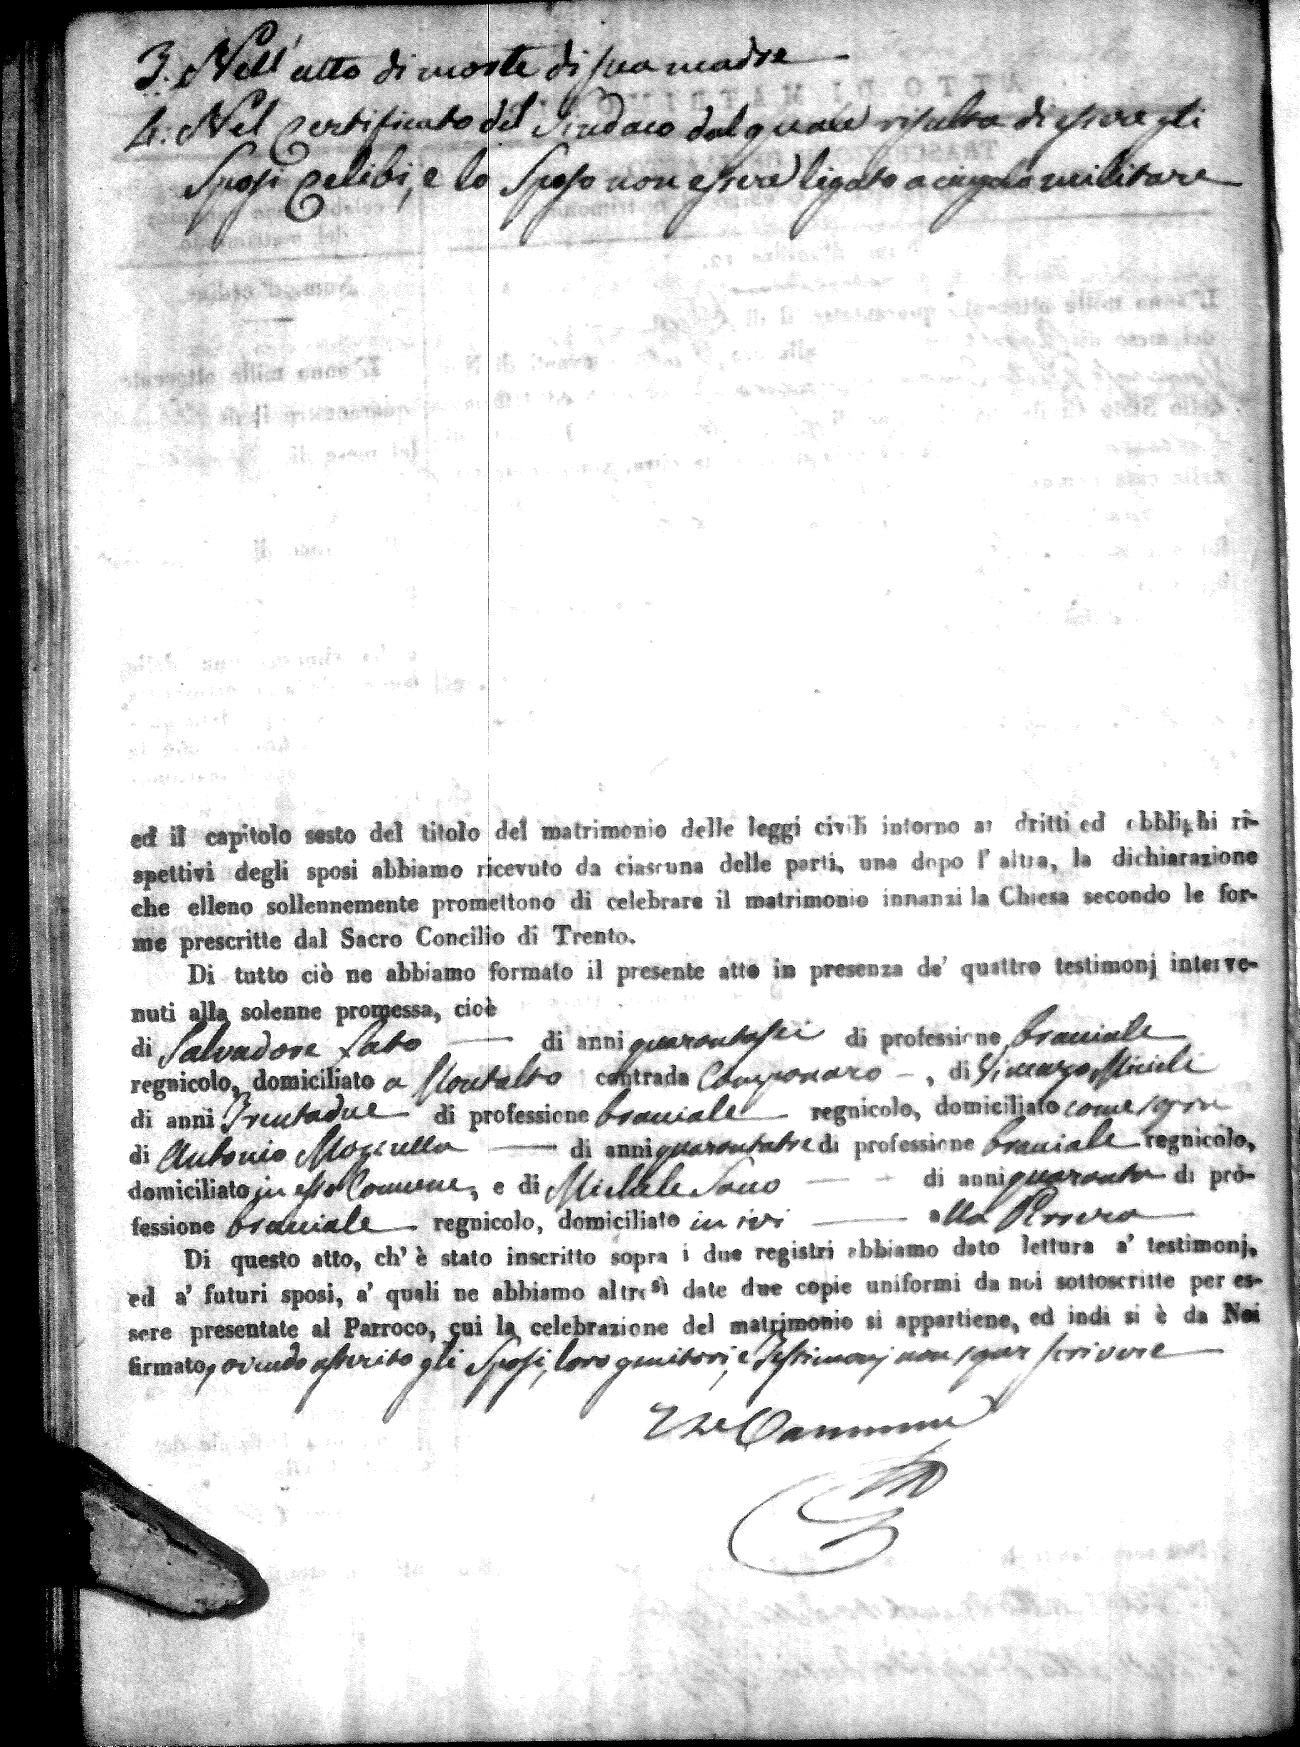 3. Nell' atto di morte di sua madre
4. Nel Certificato del Sindaco dal quale risulta di essere gli
Sposi Celibi, e lo Sposo non essere ligato a cingolo militare
ed il capitolo sesto del titolo del matrimonio delle leggi civili intorno ai dritti ed obblighi ri-
spettivi degli sposi abbiamo ricevuto da ciascuna delle parti, una dopo l' altra, la dichiarazione
che elleno sollennemente promettono di celebrare il matrimonio innanzi la Chiesa secondo le for-
me prescritte dal Sacro Concilio di Trento.
Di tutto ciò ne abbiamo formato il presente atto in presenza de' quattro testimonj interve-
nuti alla solenne promessa, cioè
di Salvadore Lato di anni quarantasei di professione braciale
regnicolo, domiciliato a Montalto contrada Camponaro, di
di anni Trentadue di professione braciale regnicolo, domiciliato come sopra
di Antonio di anni quarantatre di professione braciale regnicolo,
domiciliato in esso Comune, e di Michele di anni quaranta di pro-
fessione braciale regnicolo, domiciliato in ivi alla
Di questo atto, ch' è stato inscritto sopra i due registri abbiamo dato lettura a' testimonj,
ed a' futuri sposi, a' quali ne abbiamo altresì date due copie uniformi da noi sottoscritte per es-
sere presentate al Parroco, cui la celebrazione del matrimonio si appartiene, ed indi si è da Noi
firmato, avendo asserito gli Sposi, loro genitori, e Testimonj non saper scrivere